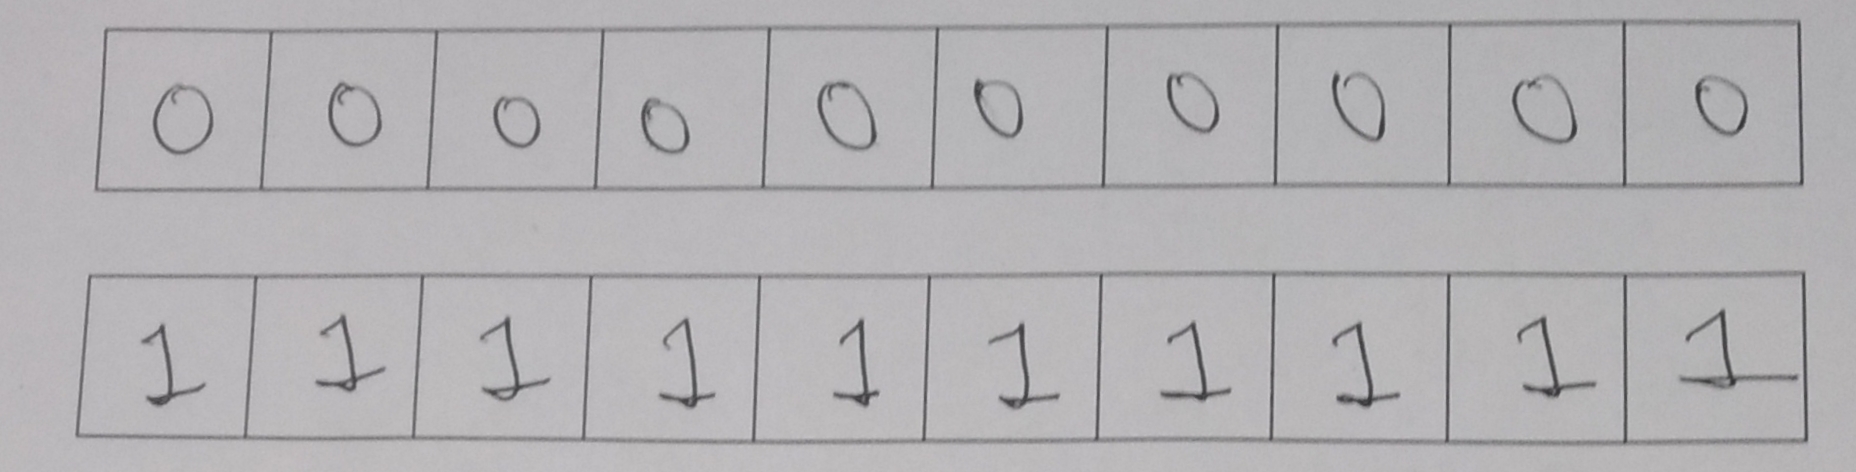 0 0 0 0 0 0 0 0 0 0
1 1 1 1 1 1 1 1 1 1